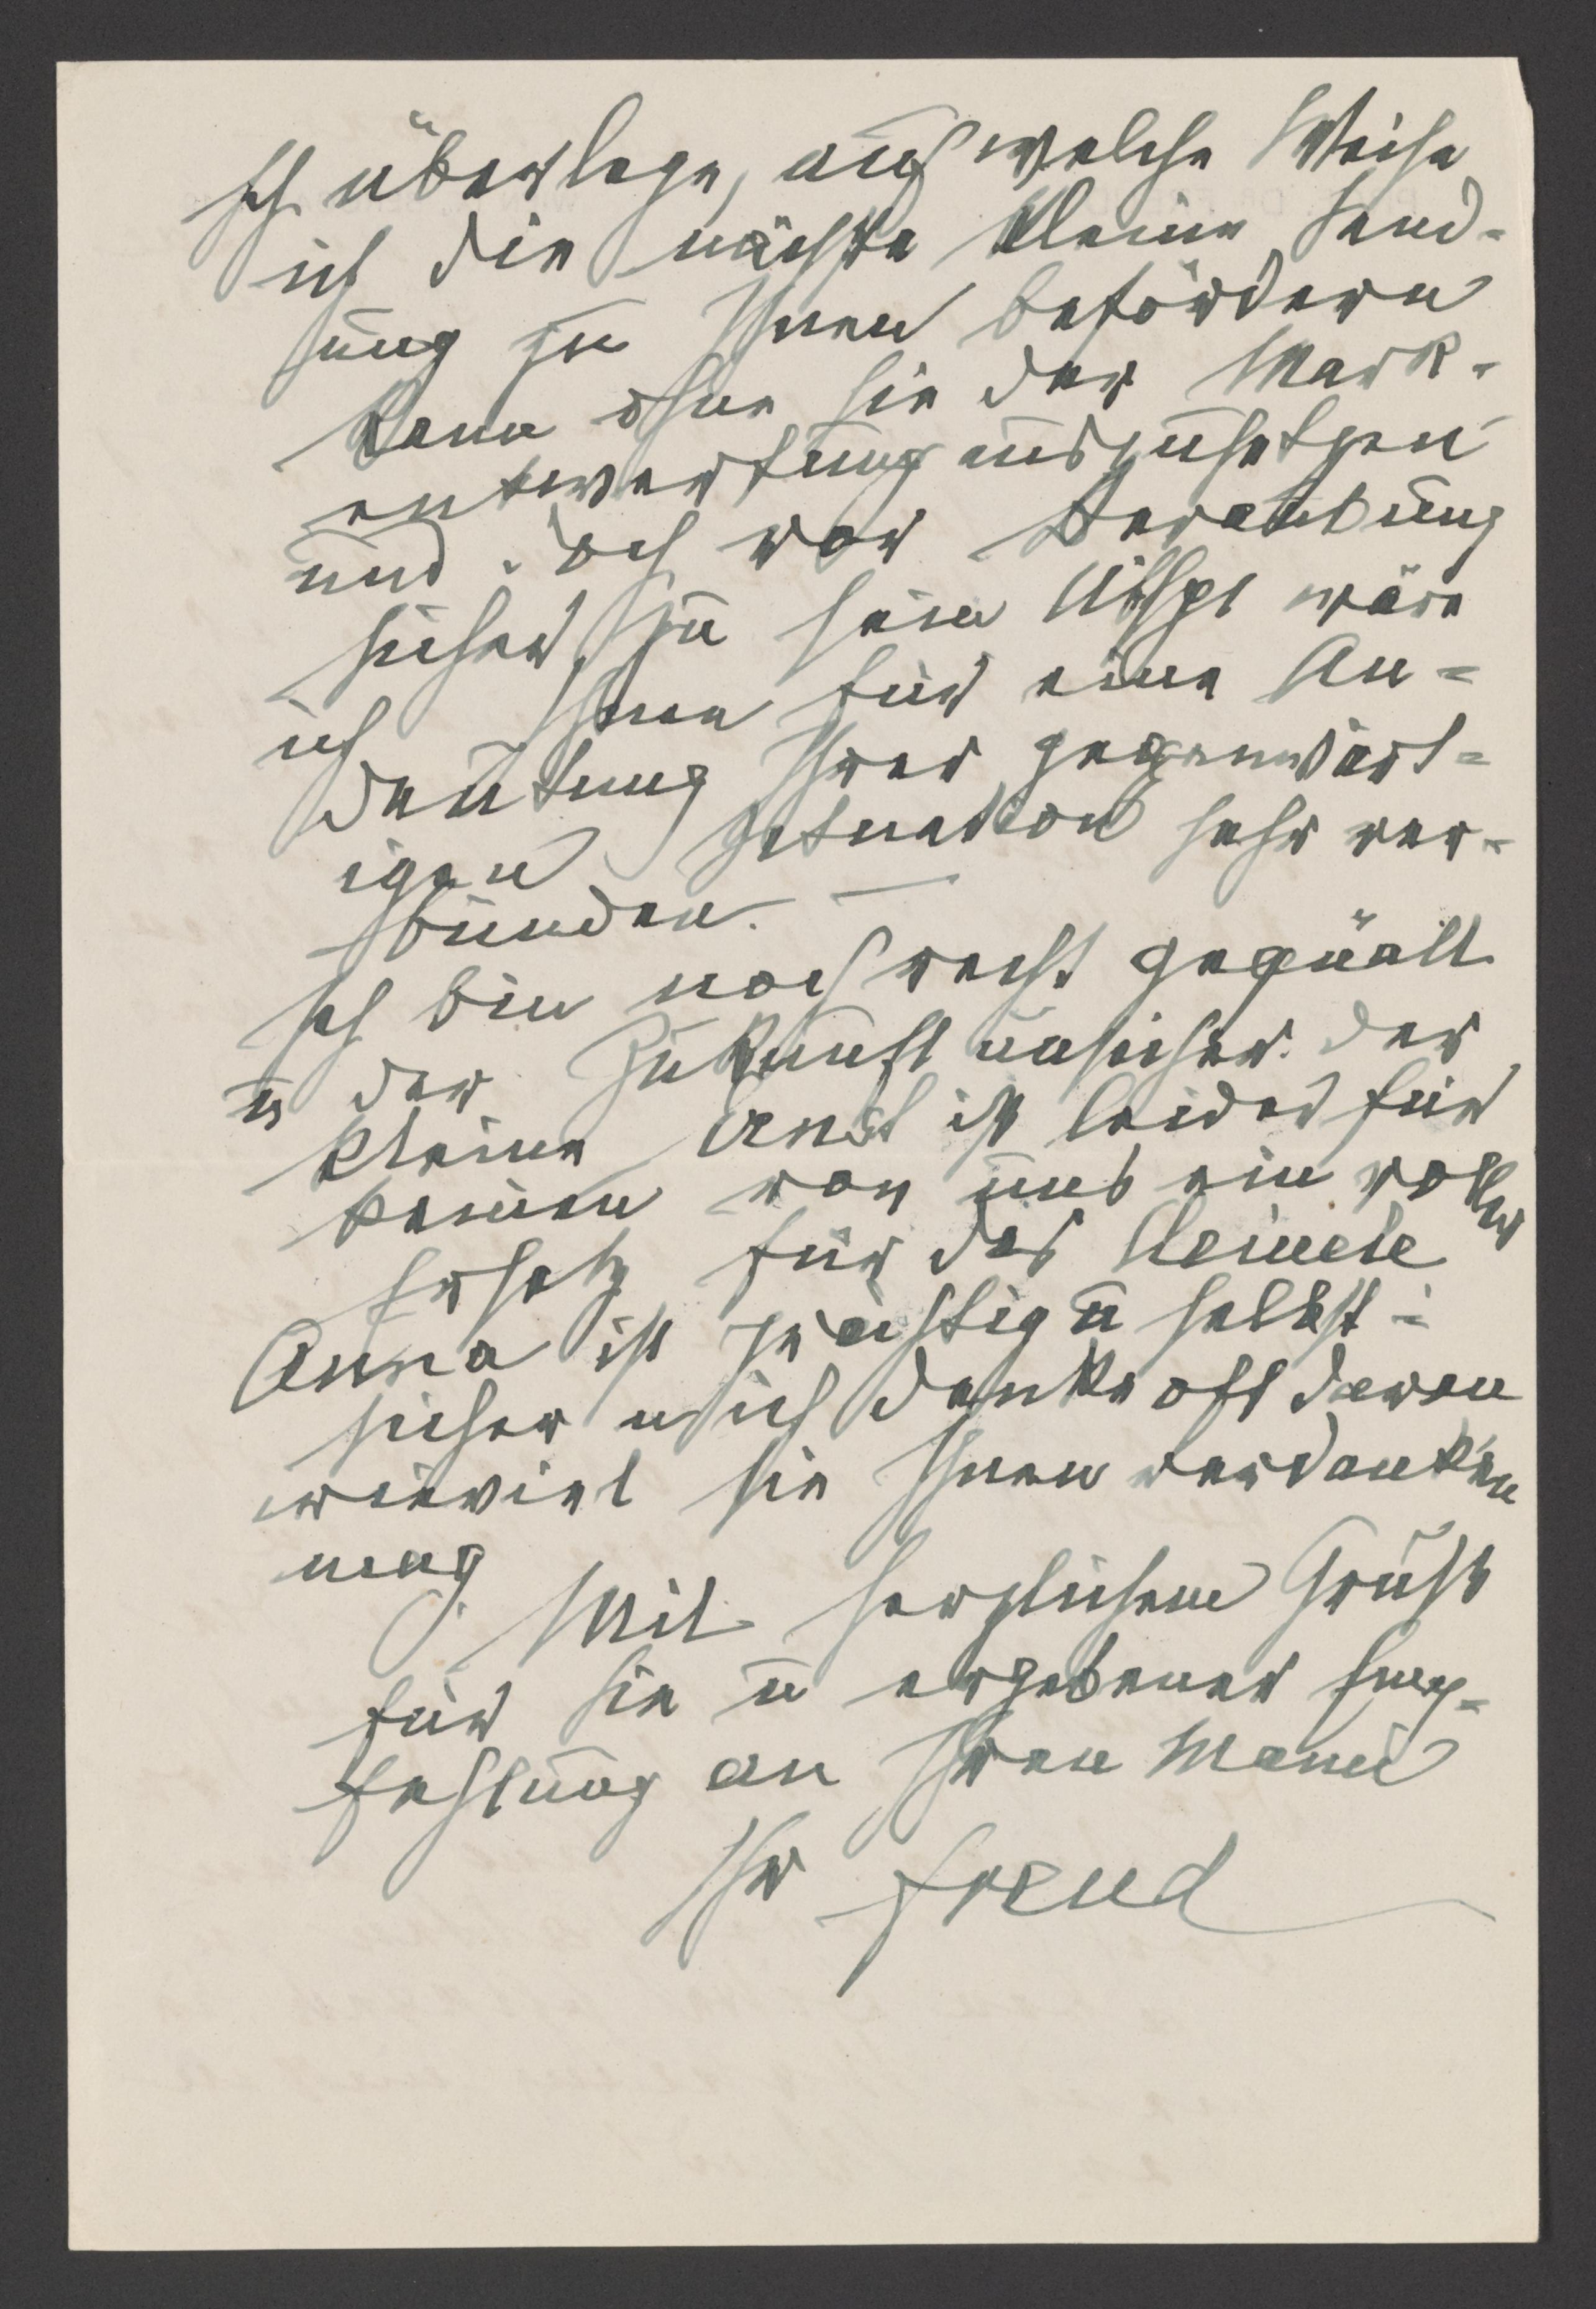 Ich überlege, auf welche Weise
ich die nächste kleine Send-
ung zu Ihnen befördern
kann ohne sie der Mark-
entwertung auszusetzen
und doch vor Beraubung
sicher zu sein. Auch wäre
ich Ihnen für eine An-
deutung Ihrer gegenwärt-
igen Situation sehr ver-
bunden. —
Ich bin noch recht gequält
u der Zukunft unsicher. Der
kleine Ernst ist leider für
keinen von uns ein voller
Ersatz für das Heinele
Anna ist prächtig u selbst-
sicher u ich denke oft daran
wieviel sie Ihnen verdanken
mag.
Mit herzlichem Gruß
für Sie u ergebener Emp-
fehlung an Ihren Mann
Ihr Freud